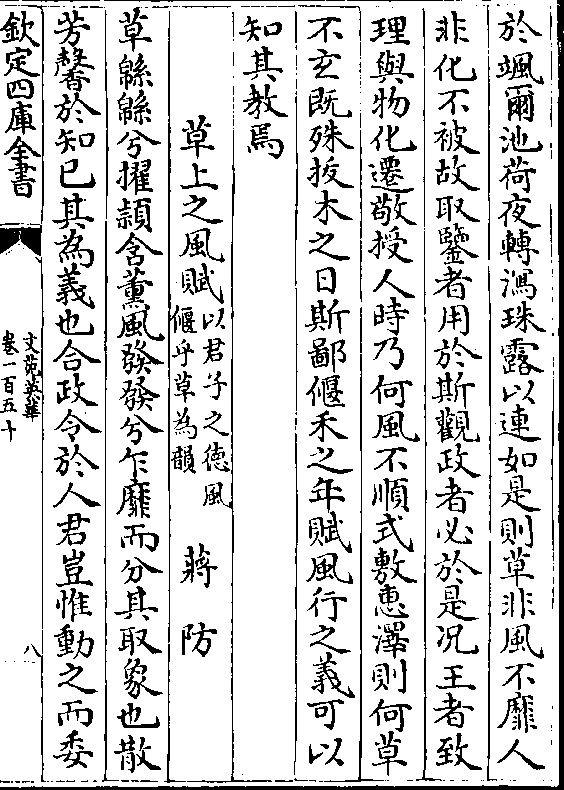 於颯爾池荷夜轉瀉珠露以連如是則草非風不靡人
非化不被故取鑒者用於斯觀政者必於是况王者致
理與物化遷敬授人時乃何風不順式敷惠澤則何草
不玄既殊拔木之日斯鄙偃禾之年賦風行之義可以
知其教焉
草上之風賦以君子之德風偃乎草為韻 蔣防
草緜緜兮擢頴含薰風發發兮乍靡而分其取象也散
芳馨於知已其為義也合政令於人君豈惟動之而委
欽定四庫全書 文苑英華 卷一百五十 八